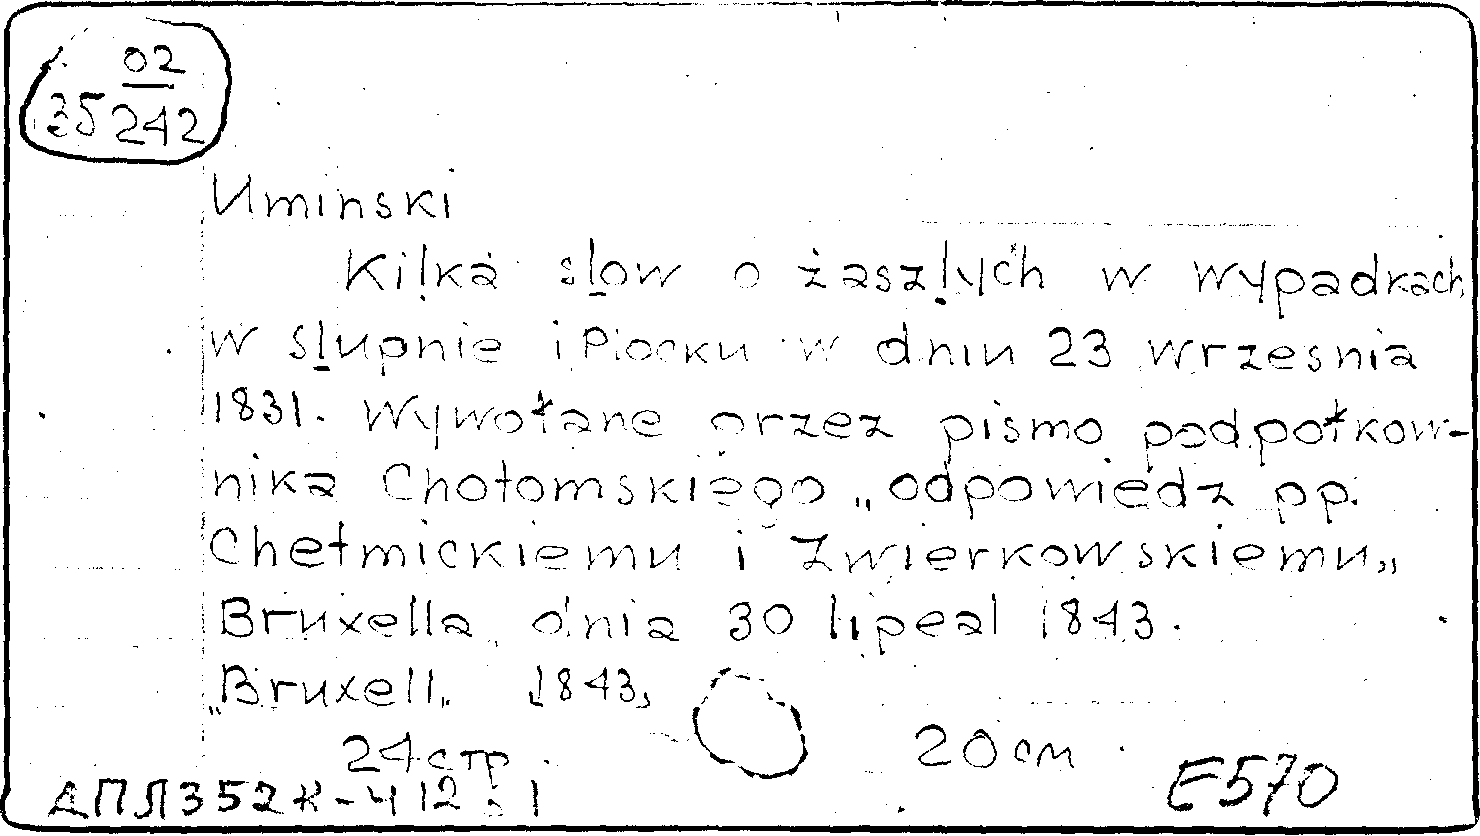 02
35 242
Uminski
Kilka słow o zaszłych w wypadkach
w słupnie i Plocku w dniu 23 wrzesnia
1831. Wywołane przez pismo podpołkow-
nika Chołomskiego „odpowiedz pp.
Chełmickiemu i Zwierkowskiemu„
Bruxella dnia 30 lipeal 1843.
„Bruxell„ 1843,
24 стр. 20 см
E570